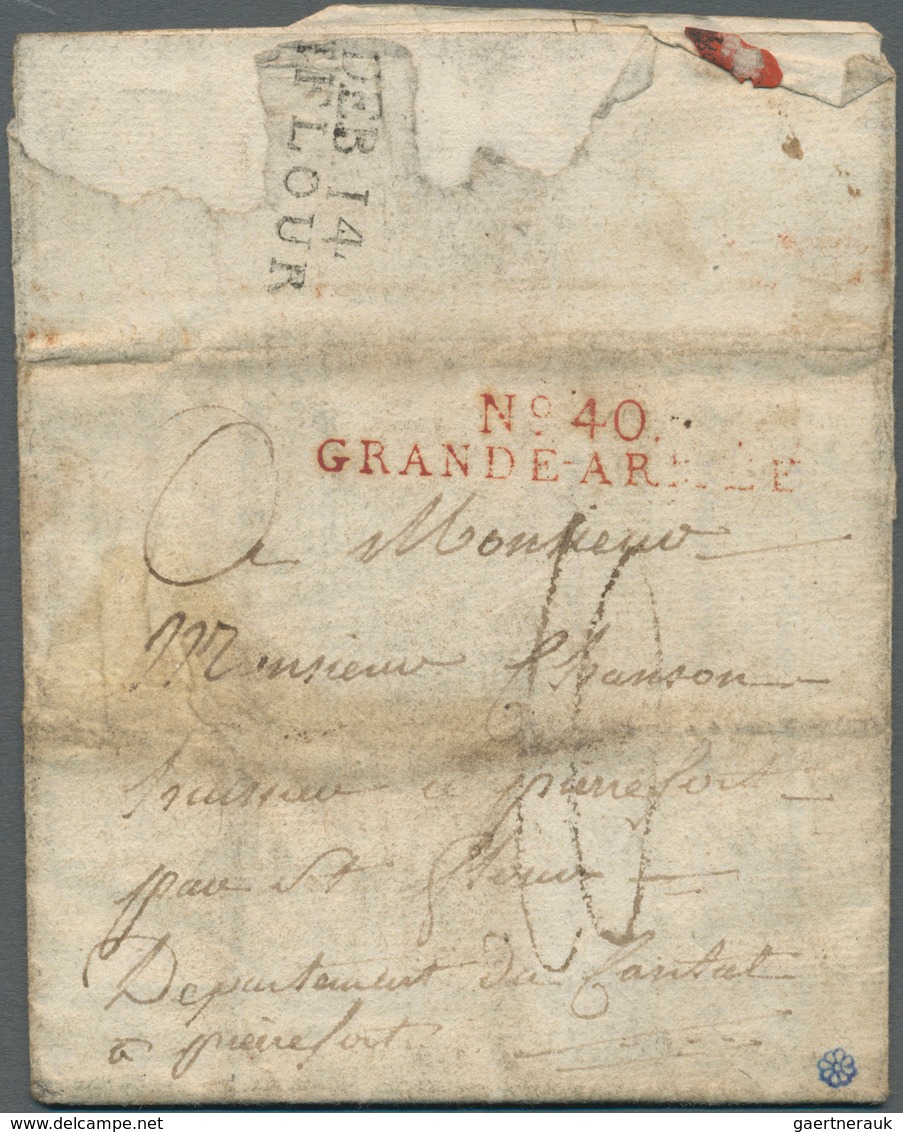 DEB. 14.
ST FLOUR
No 40.
GRANDE-ARMÉE
A Monsieur
Monsieur Chanson
huissier a pierrefort
par St flour
Departement du Cantal
a pierrefort
gaertnerauk